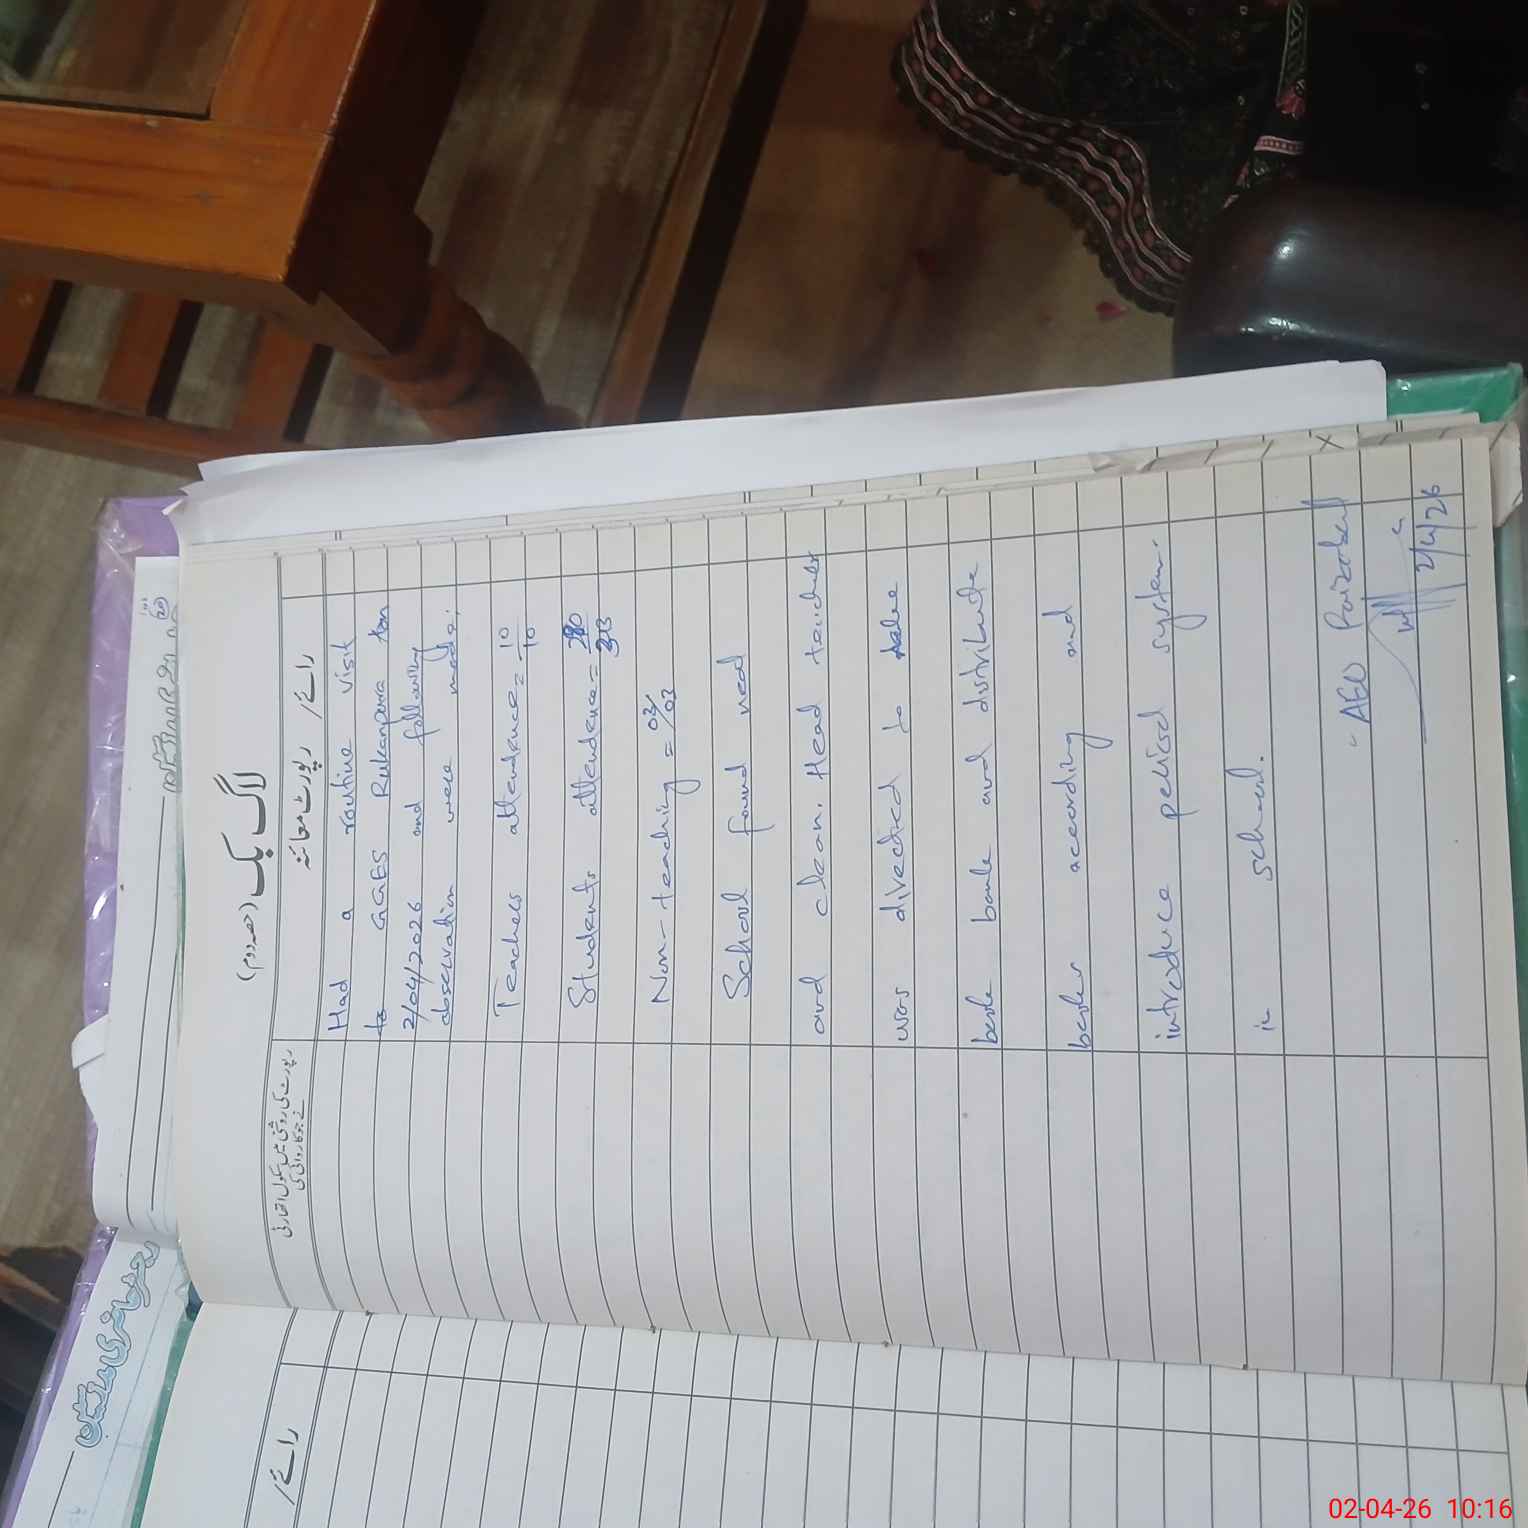 لاگ بک (حصہ دوم)
رائے / رپورٹ معائنہ
رپورٹ کی روشنی میں سکول اتھارٹی
نے جو کاروائی کی
Had a routine visit
to GGES Rukanpura on
2/04/2026 and following
observation were made:
Teachers attendence = 10/10
Students attendence = 280/313
Non-teaching = 03/03
School found neat
and clean. Head teacher
was directed to take
book bank and distribute
books according and
introduce period system.
in school.
AEO
2/4/26
رائے /
02-04-26 10:16